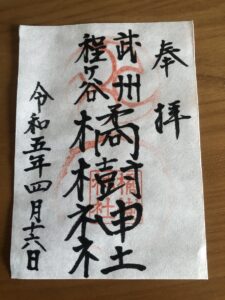 奉拝
武州
程ヶ谷
橘樹神社
橘樹
神社
令和五年四月十六日